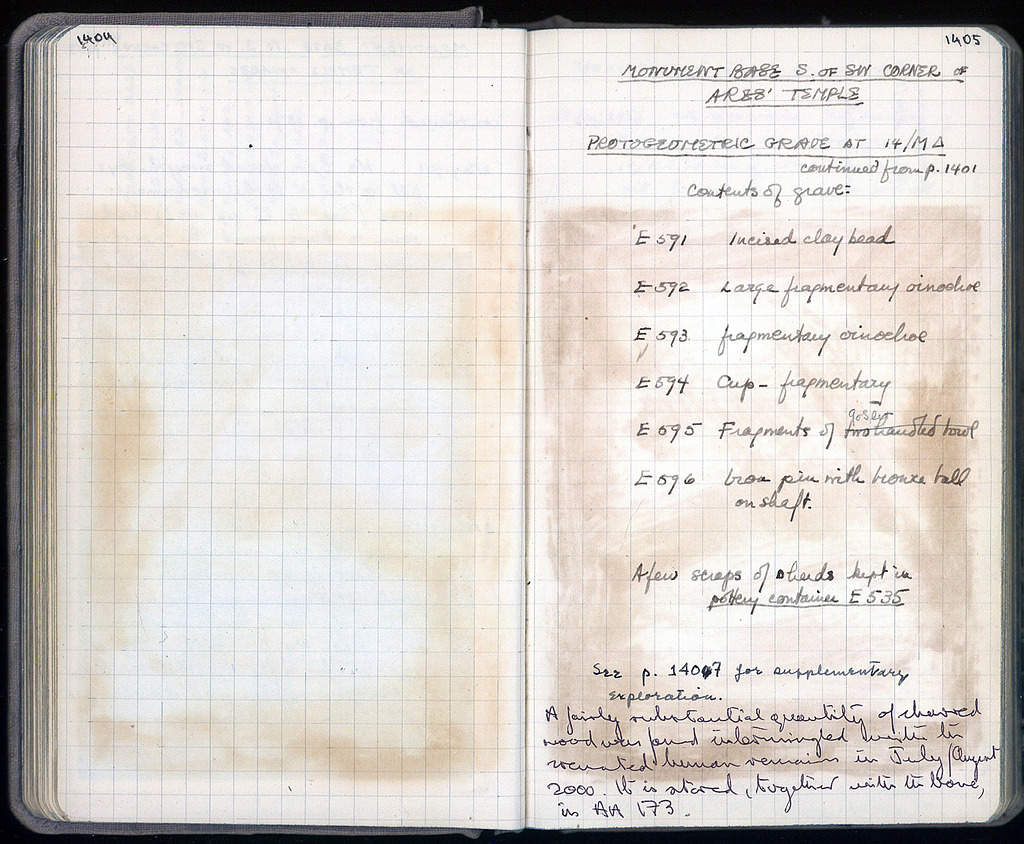 1404
1405
MONUMENT BASE S. OF SW CORNER OF
ARES' TEMPLE
PROTOGEOMETRIC GRAVE AT 14/MΔ
continued from p. 1401
Contents of grave:
E 591 Incised clay bead
E 592 Large fragmentary oinochoe
E 593 fragmentary oinochoe
E 594 Cup - fragmentary
E 595 Fragments of two handled bowl
E 596 Iron pin with bronze ball
on shaft.
A few scraps of sherds kept in
pottery container E 535
See p. 1407 for supplementary
exploration.
A fairly substantial quantity of charred
wood was found intermingled with the
cremated human remains in July/August
2000. It is stored, together with the bone,
in AA 173.